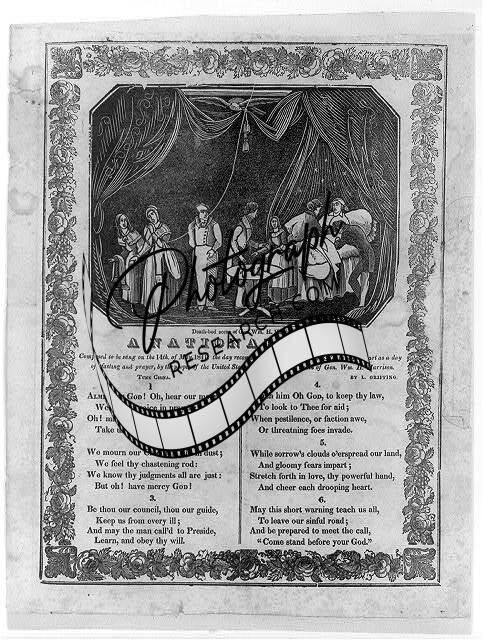 Photograph
Death-bed scene of Wm. H.
A
Composed to be sung on the 14th. of May, the day apart as a day
of fasting and prayer, by the people of the United of Gen. Wm. H. Harrison.
TUNE CHINA. BY L. GRIFFING.
1
GOD! Oh, hear our
in
Oh!
Take
We mourn our dust;
We feel thy chastening rod:
We know thy judgments all are just:
But oh! have mercy GOD!
3.
Be thou our council, thou our guide,
Keep us from every ill;
And may the man call'd to Preside,
Learn, and obey thy will.
4.
him Oh GOD, to keep thy law,
To look to Thee for aid;
When pestilence, or faction awe,
Or threatning foes invade.
5.
While sorrow's clouds o'erspread our land,
And gloomy fears impart;
Stretch forth in love, thy powerful hand,
And cheer each drooping heart.
6.
May this short warning teach us all,
To leave our sinful road;
And be prepared to meet the call,
"Come stand before your God."